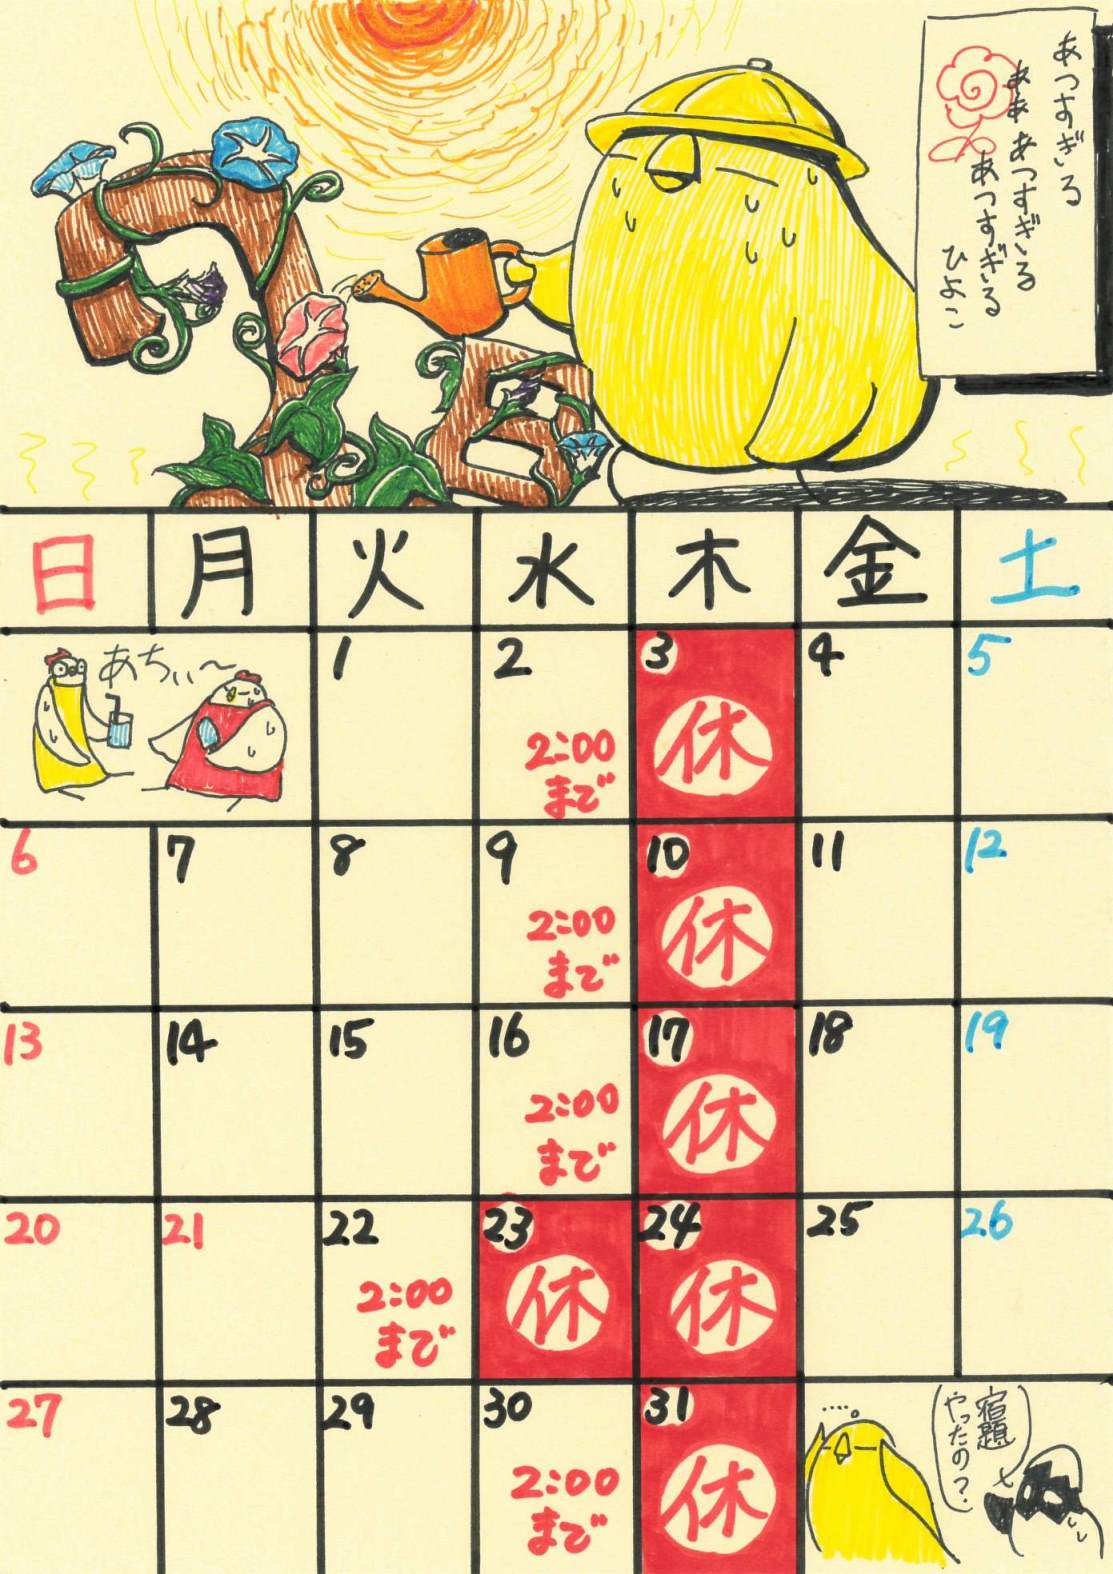 7月
あつすぎる
ああ あつすぎる
あつすぎる
ひよこ
日 月 火 水 木 金 土
あちぃ〜
1 2 3 4 5
2:00
まで
休
6 7 8 9 10 11 12
2:00
まで
休
13 14 15 16 17 18 19
2:00
まで
休
20 21 22 23 24 25 26
2:00
まで
休 休
27 28 29 30 31
2:00
まで
休
宿題
やったの?